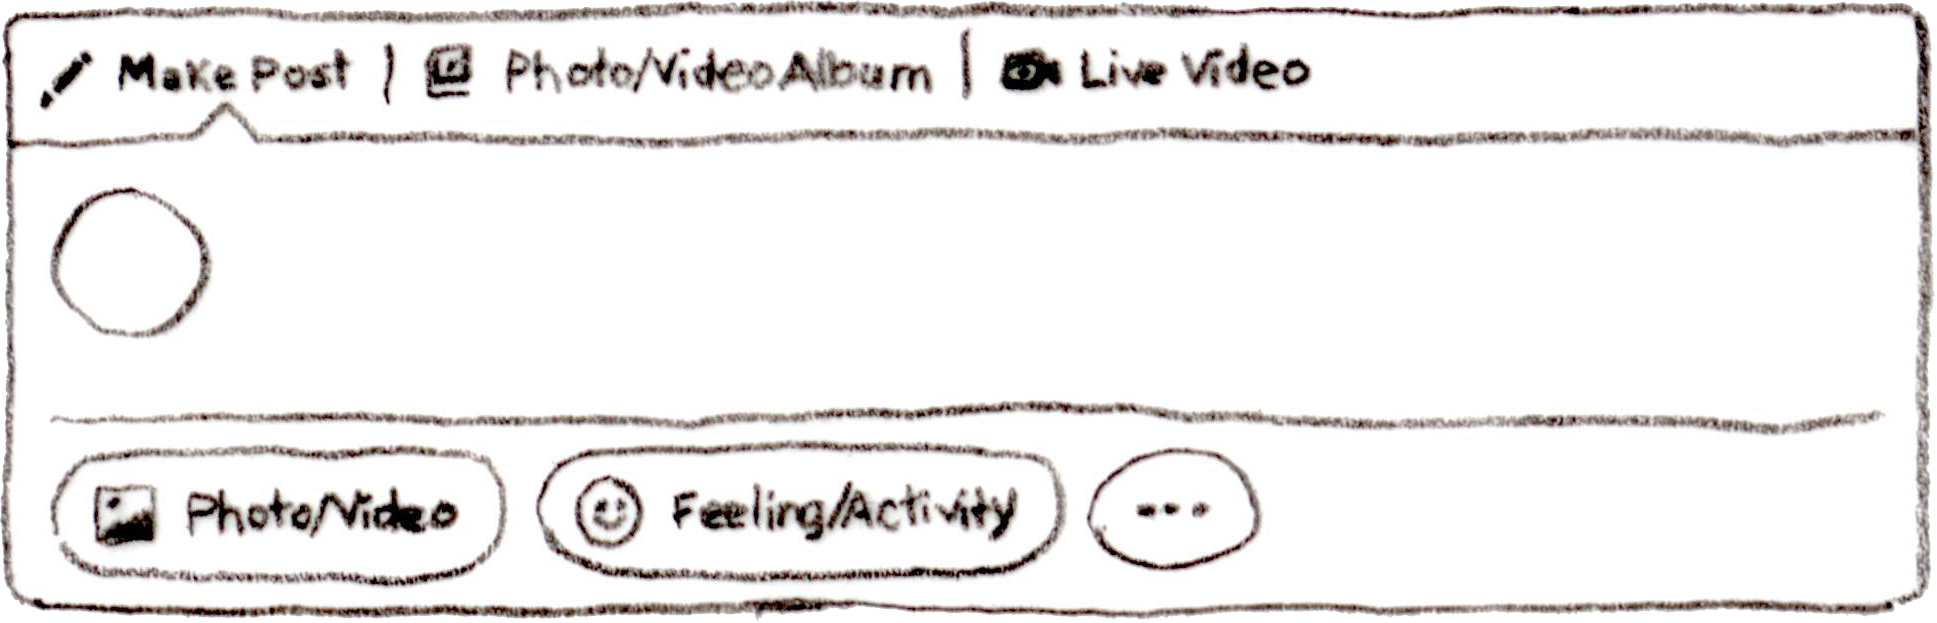 Make Post | Photo/Video Album | Live Video
Photo/Video Feeling/Activity ...